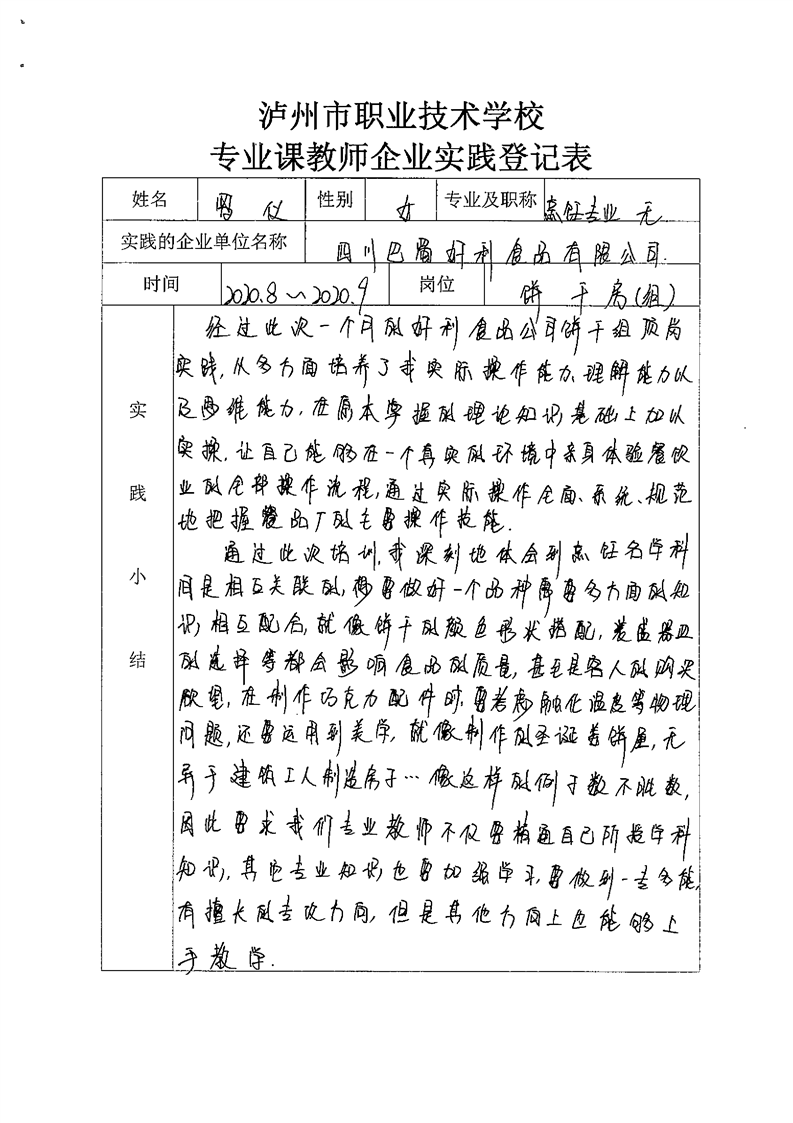 泸州市职业技术学校
专业课教师企业实践登记表
姓名 仪 性别 女 专业及职称 烹饪专业 无
实践的企业单位名称 四川巴蜀好利食品有限公司.
时间 2020.8～2020.9 岗位 饼干房(组)
实践小结
经过此次一个月的好利食品公司饼干组顶岗
实践,从多方面培养了我实际操作能力、理解能力以
及思维能力,在原本掌握的理论知识基础上加以
实操,让自己能够在一个真实的环境中亲身体验餐饮
业的全部操作流程,通过实际操作全面、系统、规范
地把握餐品厂的主要操作技能.
通过此次培训,我深刻地体会到烹饪各学科
间是相互关联的,想要做好一个品种需要多方面的知
识相互配合,就像饼干的颜色形状搭配,装盛器皿
的选择等都会影响食品的质量,甚至是客人的购买
欲望,在制作巧克力配件时,要考虑融化温度等物理
问题,还要运用到美学,就像制作的圣诞姜饼屋,无
异于建筑工人制造房子…像这样的例子数不胜数,
因此要求我们专业教师不仅要精通自己所授学科
知识,其它专业知识也要加强学习,要做到一专多能,
有擅长的专攻方向,但是其他方向上也能够上
手教学.